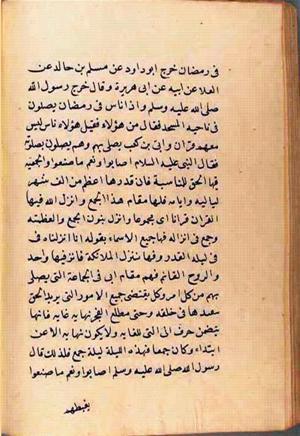 فى رمضان خرج ابو داود عن مسلم بن خالد عن
العلا عن ابيه عن ابى هريرة وقال خرج رسول الله
صلى الله عليه وسلم واذا ناس فى رمضان يصلون
فى ناحيه المسجد فقال من هؤلاء فقيل هؤلاء ناس ليس
معهم قران وابى بن كعب يصلى بهم وهم يصلون بصلاته
فقال النبى عليه السلام اصابوا ونعم ما صنعوا والجمعية
فيها الحق للناسبة فان قدرها اعظم من الف شهر
لياليه وايامه فلها مقام هذا الجمع وانزل الله فيها
القران قرانا اى مجموعا وانزل بنون الجمع والعظمة
وجمع فى انزاله فيها جميع الاسماء بقوله انا انزلناه فى
فى ليلة القدر وفها تنزل الملائكة فانز فيها واحد
والروح القائم فهم مقام ابى فى الجماعة التى يصلى
بهم من كل امر وكل يقتضى جميع الامور التى يريد الحق
سعيد ها فى خلقه وحتى مطلع الفجر نهاية غاية فانها
يتضمن حرف الى التى للغاية ولا يكون نهاية الا عن
ابتداء وكان جمعا فهذه الليلة ليلة جمع فلذلك قال
رسول الله صلى الله عليه وسلم اصابوا ونعم ما صنعوا
يغبطهم